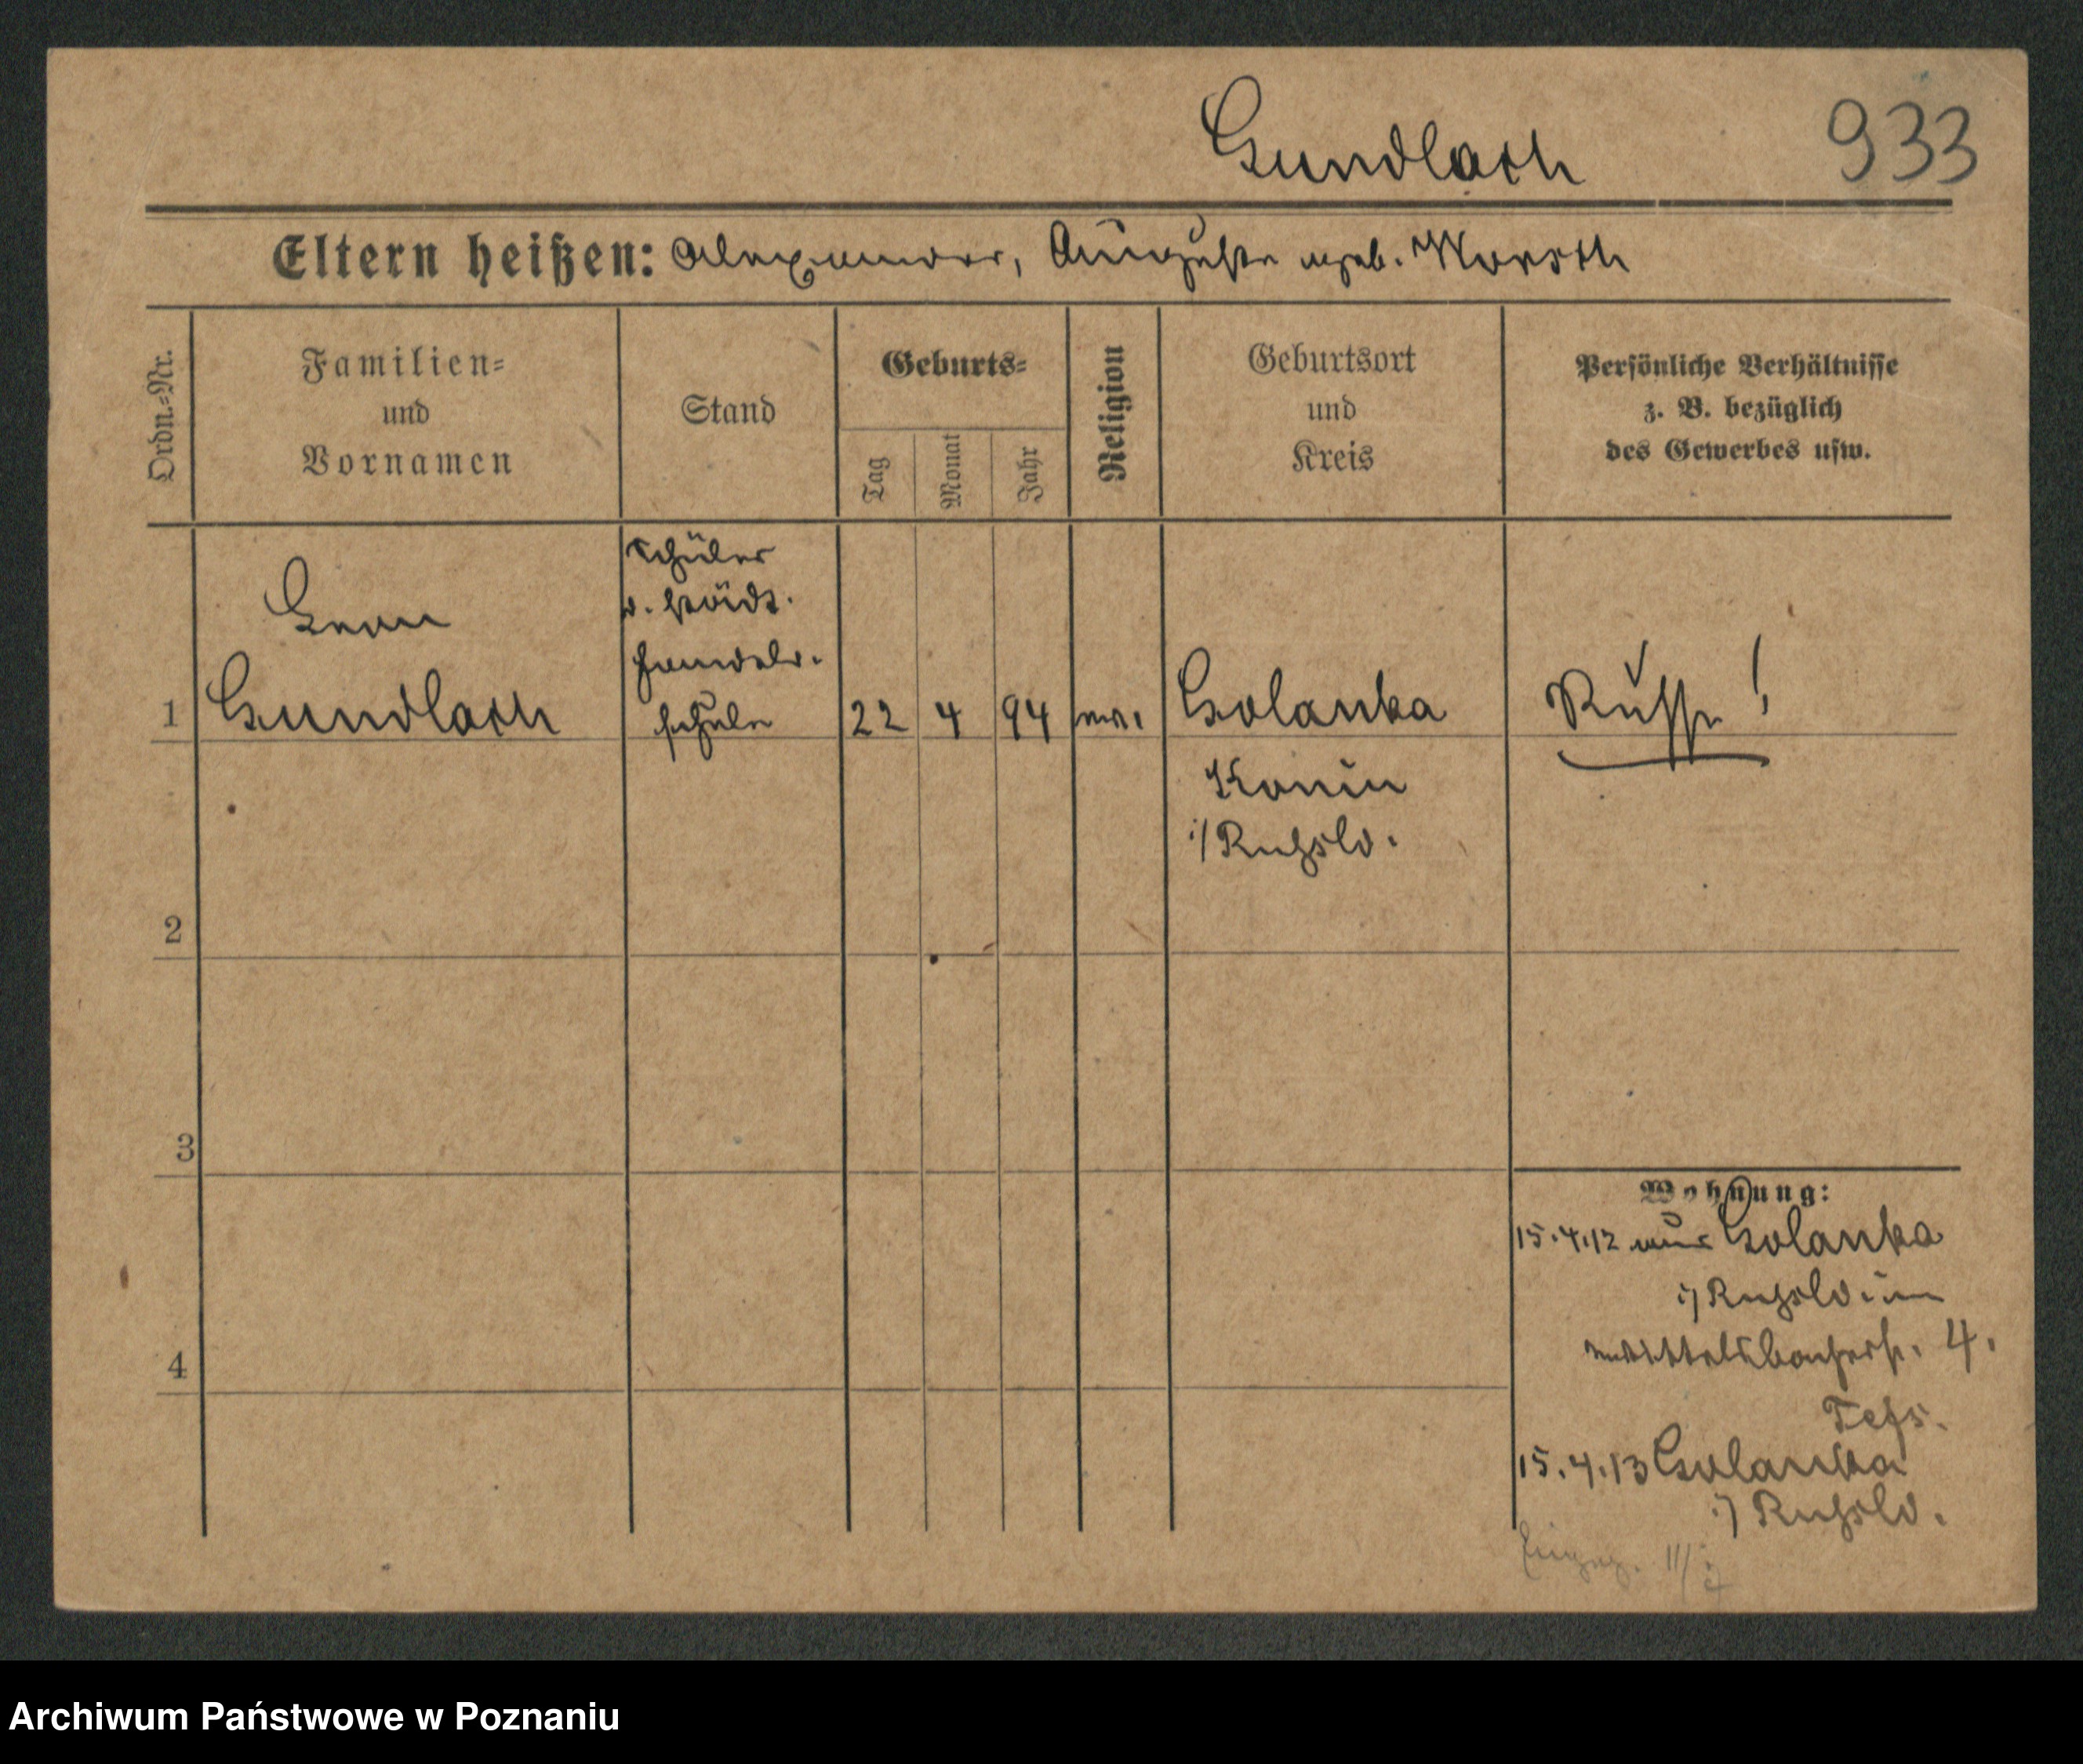 Gundlach 933
Eltern heißen: Alexander, Auguste geb. Worsch
Ordn.-Nr.
Familien-
und
Vornamen
Stand
Geburts-
Tag
Monat
Jahr
Religion
Geburtsort
und
Kreis
Persönliche Verhältnisse
z. B. bezüglich
des Gewerbes usw.
1
Leon
Gundlach
Schüler
d. städt.
Handels-
schule
22 4 94 ev.
Golanka
Konin
i/Russld.
Russe!
2
3
4
Wohnung:
15.4.12 aus Golanka
i/Russld. in
Wittelsbacherstr. 4.
15.4.13 Golanka
i/Russld.
Archiwum Państwowe w Poznaniu